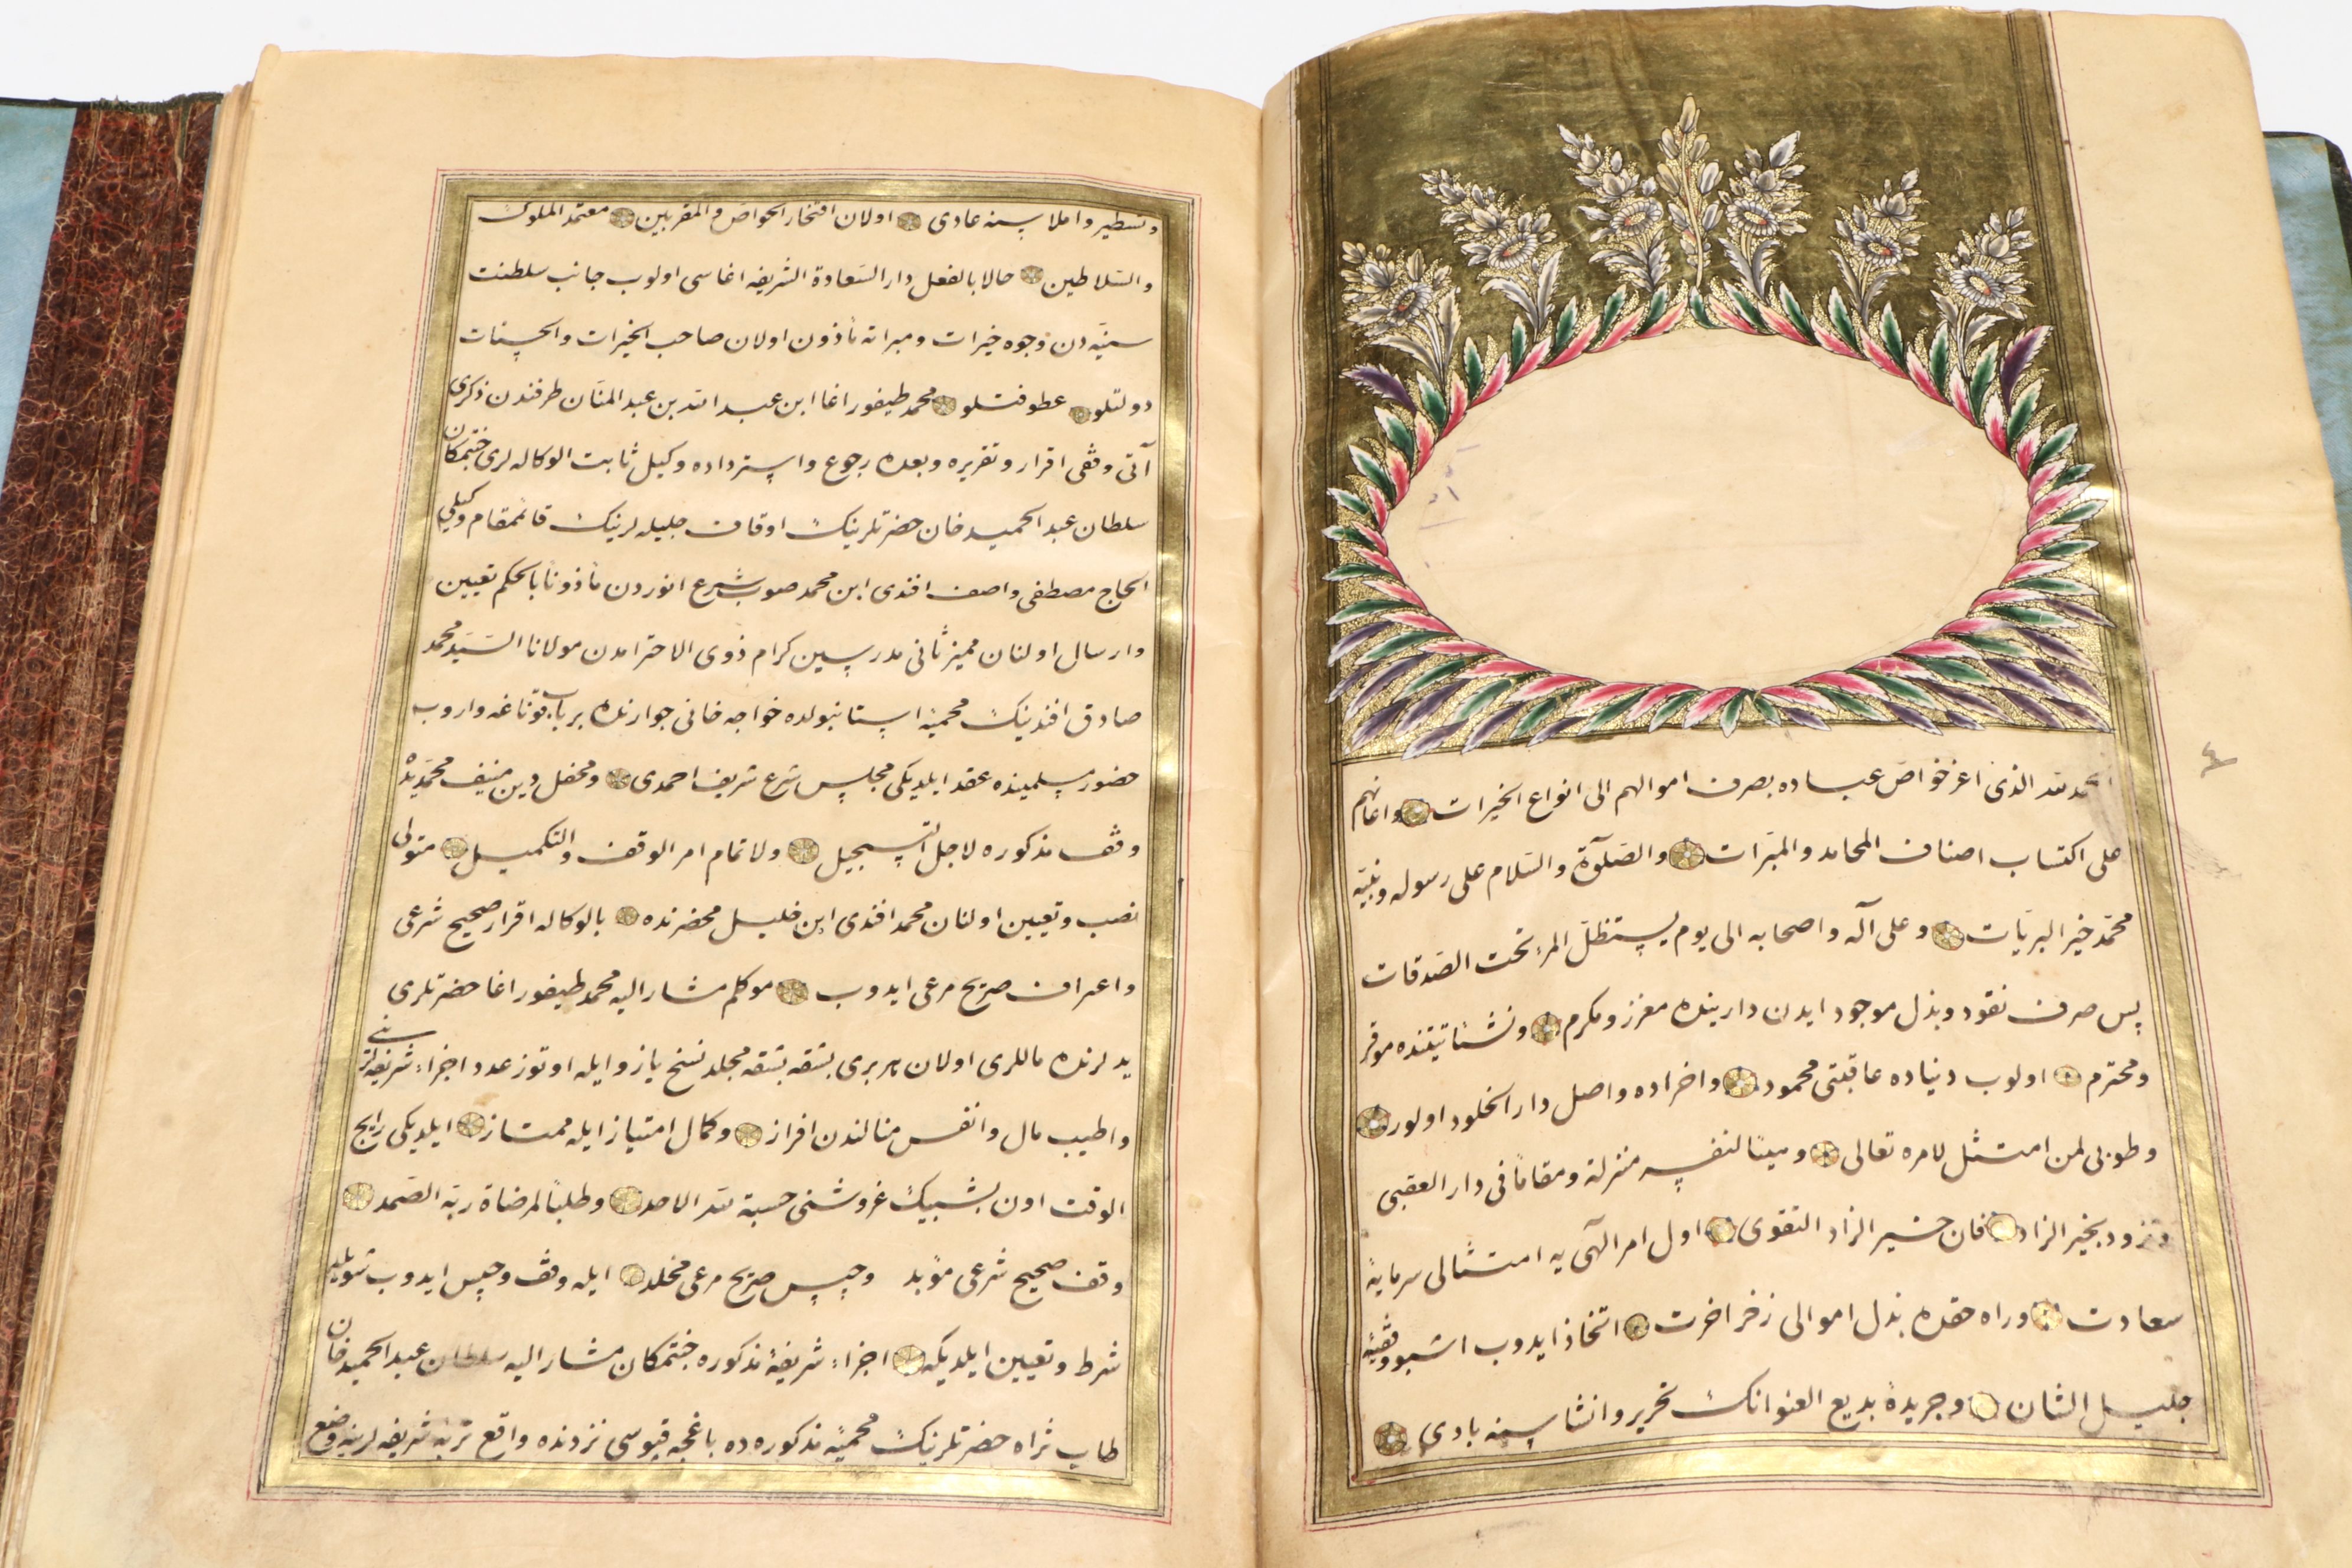 الحمد لله الذی اعز خواص عباده بصرف اموالهم الی انواع الخیرات واعانهم
علی اکتساب اصناف المحامد والمبرات والصلوة والسلام علی رسوله ونبیه
محمد خیر البریات وعلی آله واصحابه الی یوم یستظل المرء تحت الصدقات
پس صرف نقود وبذل موجود ایدن دارینده معزز ومکرم ونشئاتینده موقر
ومحترم اولوب دنیاده عاقبتی محمود واخراده واصل دار الخلود اولور
وطوبی لمن امتثل لامره تعالی وهیئا لنفسه منزلة ومقاما فی دار العقبی
وتزود بخیر الزاد فان خیر الزاد التقوی اول امر الهی یه امتثالی سرمایهٔ
سعادت وراه حقده بذل اموالی زخر اخرت اتخاذ ایدوب اشبو وقفیهٔ
جلیل الشان وجریدهٔ بدیع العنوانک تحریر وانشاسنه بادی
وتسطیر واملاسنه عادی اولان افتخار الخواص والمقربین معتمد الملوک
والسلاطین حالا بالفعل دار السعادة الشریفه اغاسی اولوب جانب سلطنت
سنیه دن وجوه خیرات ومبراته مأذون اولان صاحب الخیرات والحسنات
دولتلو عطوفتلو محمد طیفور اغا ابن عبد الله بن عبد المنان طرفندن ذکری
آتی وقفی اقرار وتقریره وبعده رجوع واسترداده وکیل ثابت الوکاله لری جنتمکان
سلطان عبد الحمید خان حضرتلرینک اوقاف جلیله لرینک قائممقام وکیلی
الحاج مصطفی واصف افندی ابن محمد صوب شرع انوردن مأذونا بالحکم تعیین
وارسال اولنان ممیز ثانی مدرسین کرام ذوی الاحترامدن مولانا السید محمد
صادق افندینک محمیهٔ استانبولده خواجه خانی جوارنده برباب قوناغه واروب
حضور مسلمینده عقد ایلدیکی مجلس شرع شریف احمدی ومحفل دین منیف محمدیده
وقف مذکوره لاجل التسجیل ولاتمام امر الوقف والتکمیل متولی
نصب وتعیین اولنان محمد افندی ابن خلیل محضرنده بالوکاله اقرار صحیح شرعی
واعتراف صریح مرعی ایدوب موکلم مشار الیه محمد طیفور اغا حضرتلری
یدلرنده ماللری اولان هر بری بشقه بشقه مجلد نسخ یازو ایله اوتوز عدد اجزاء شریفه لرینی
واطیب مال وانفس منالندن افراز وکمال امتیاز ایله ممتاز ایلدیکی رایج
الوقت اون بشبیک غروشنی حسبة لله الاحد وطلبا لمرضاة ربه الصمد
وقف صحیح شرعی مؤبد وحبس صریح مرعی مخلد ایله وقف وحبس ایدوب شویله
شرط وتعیین ایلدیکه اجزاء شریفهٔ مذکوره جنتمکان مشار الیه سلطان عبد الحمید خان
طاب ثراه حضرتلرینک محمیهٔ مذکوره ده باغچه قپوسی نزدنده واقع تربهٔ شریفه لرینه وضع